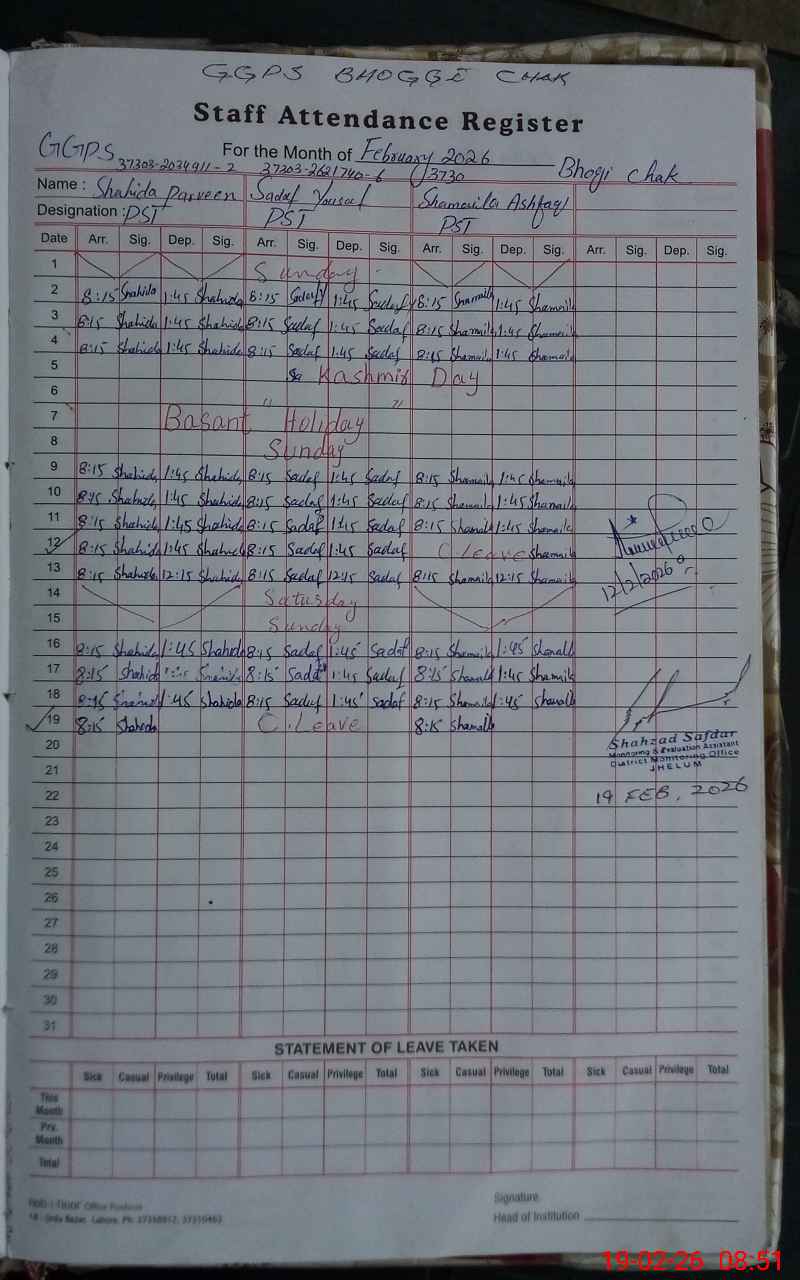 GGPS BHOGGI CHAK
Staff Attendance Register
GGPS For the Month of February 2026 Bhogi Chak
37303-2034911-2 37303-2621740-6 3730
Name : Shahida Parveen Sadaf Yousaf Shamaila Ashfaq
Designation : PST PST PST
Date Arr. Sig. Dep. Sig. Arr. Sig. Dep. Sig. Arr. Sig. Dep. Sig. Arr. Sig. Dep. Sig.
1 Sunday
2 8:15 Shahida 1:45 Shahida 8:15 Sadaf 1:45 Sadaf 8:15 Shamaila 1:45 Shamaila
3 8:15 Shahida 1:45 Shahida 8:15 Sadaf 1:45 Sadaf 8:15 Shamaila 1:45 Shamaila
4 8:15 Shahida 1:45 Shahida 8:15 Sadaf 1:45 Sadaf 8:15 Shamaila 1:45 Shamaila
5 Kashmir Day
6 " "
7 Basant Holiday
8 Sunday
9 8:15 Shahida 1:45 Shahida 8:15 Sadaf 1:45 Sadaf 8:15 Shamaila 1:45 Shamaila
10 8:15 Shahida 1:45 Shahida 8:15 Sadaf 1:45 Sadaf 8:15 Shamaila 1:45 Shamaila
11 8:15 Shahida 1:45 Shahida 8:15 Sadaf 1:45 Sadaf 8:15 Shamaila 1:45 Shamaila
12 8:15 Shahida 1:45 Shahida 8:15 Sadaf 1:45 Sadaf C Leave Shamaila
13 8:15 Shahida 12:15 Shahida 8:15 Sadaf 12:15 Sadaf 8:15 Shamaila 12:15 Shamaila
12/2/2026
14 Saturday
15 Sunday
16 8:15 Shahida 1:45 Shahida 8:15 Sadaf 1:45 Sadaf 8:15 Shamaila 1:45 Shamaila
17 8:15 Shahida 8:15 Sadaf 1:45 Sadaf 8:15 Shamaila 1:45 Shamaila
18 8:15 Shahida 1:45 Shahida 8:15 Sadaf 1:45 Sadaf 8:15 Shamaila 1:45 Shamaila
19 8:15 Shahida C. Leave 8:15 Shamaila
Shahzad Safdar
Monitoring & Evaluation Assistant
District Monitoring Office
JHELUM
19 FEB, 2026
20
21
22
23
24
25
26
27
28
29
30
31
STATEMENT OF LEAVE TAKEN
Sick Casual Privilege Total Sick Casual Privilege Total Sick Casual Privilege Total Sick Casual Privilege Total
This Month
Prv. Month
Total
Signature
Head of Institution
19-02-26 08:51